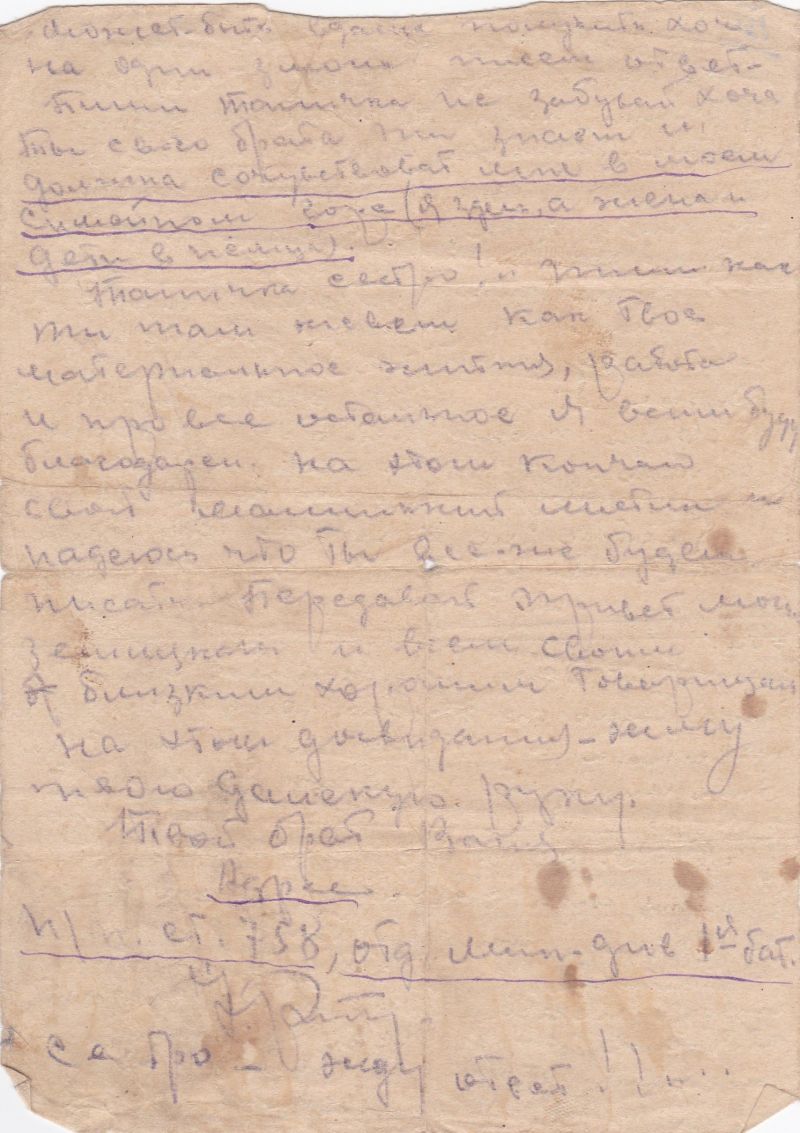 может-быть удасца получить хоч
на одно з моих писем ответ-
Пиши Таничка не забувай хоча
ты свого брата ти знаеш и
должна сочувствоват мне в моем
горе (я здесь, а жена и
дети в немца).
Таничка сестро! пиши как
ти там живеш как твое
материальное житья, работа
и про все остальное я вам буду
благодарен. на этом кончаю
свой маленький листик
надеюсь что ты все-же будеш
писать. Передавай привет моим
и всем своим
близким хорошим товарищам
на этом досвидания-жму
твою далекую руку.
Твой брат Ваня
Адрес.
п/п. ст. 758, отд. мин-див 1й бат.
Сестро - жду ответ!!